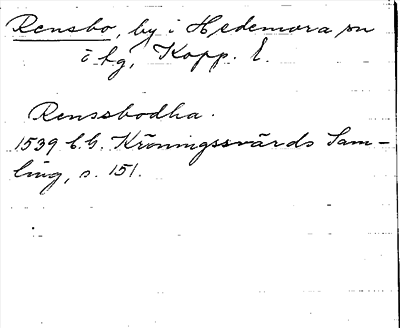 Rensbo, by i Hedemora sn
i hg, Kopp. l.
Renssbodha.
1539 b.b. Kröningssvärds Sam-
ling, s. 151.